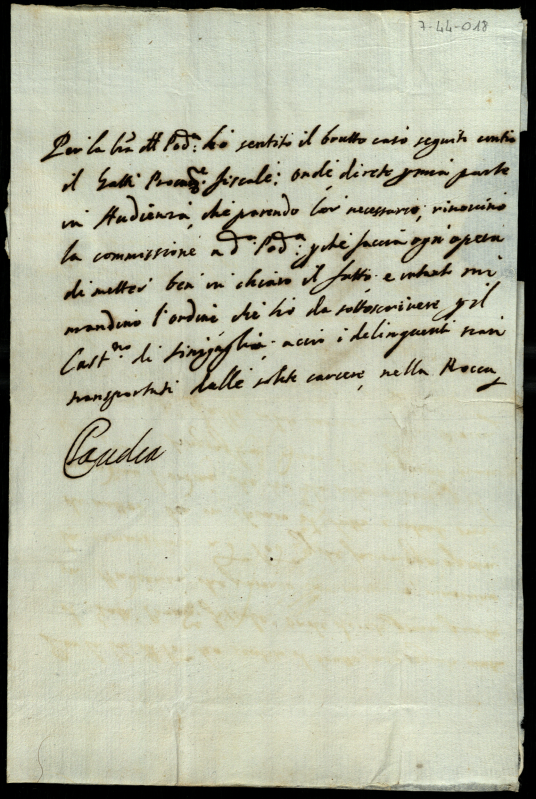 7-44-018
Per la lra del Pod.ª ho sentito il brutto caso seguito contro
il Galli Procur.e fiscale; onde direte p mia parte
in Audienza, che parendo lor necessario, rinovino
la commissione a d.º Pod.ª, p che faccia ogni opera
di metter ben in chiaro il fatto, e intanto mi
mandino l'ordine che ho da sottoscrivere p il
Cast.no di Sinigaglia, acciò i delinquenti sian
transportati dalle solite carcere, nella Rocca
Claudia